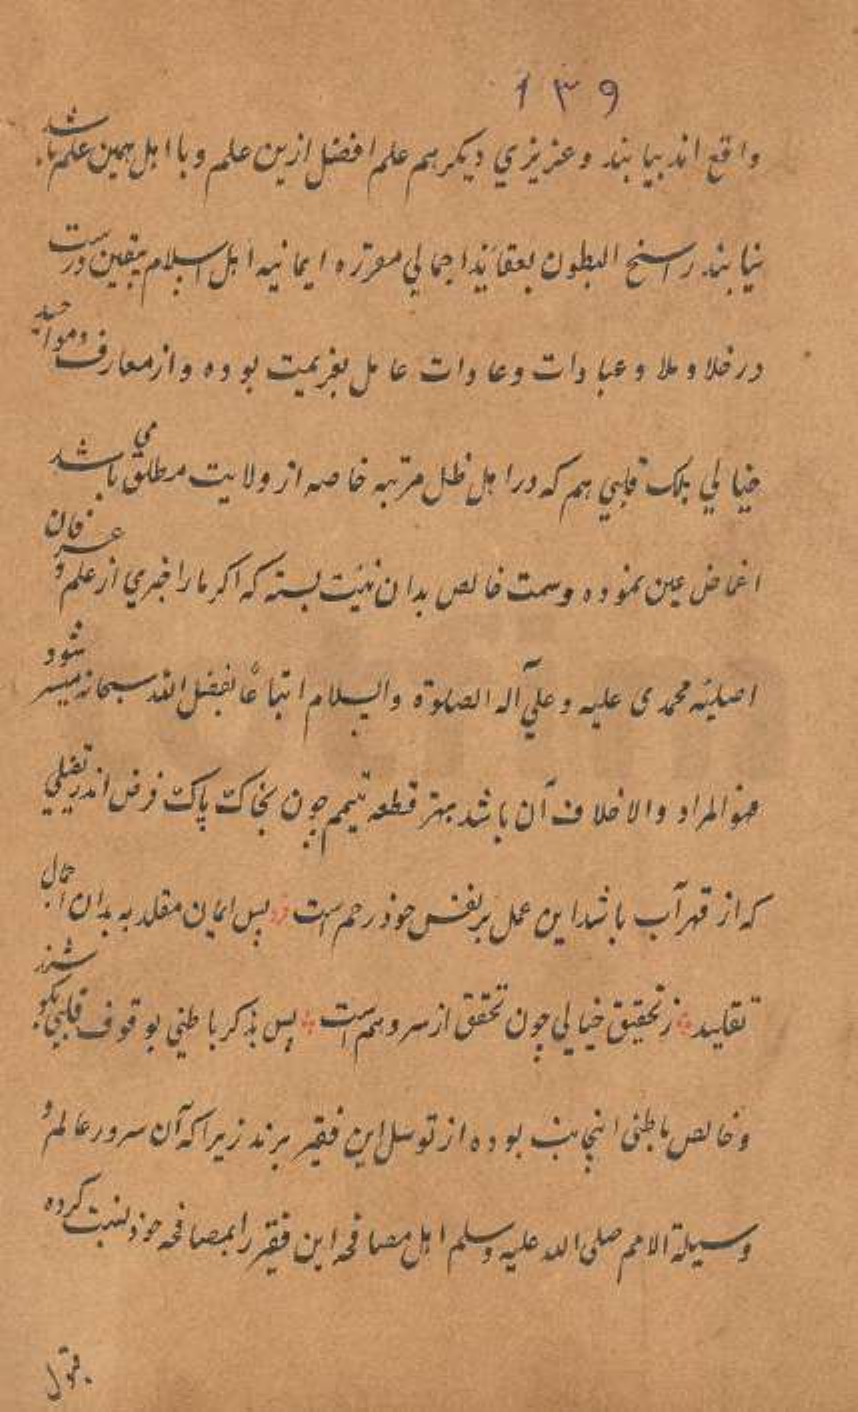 ١٣٩
واقع اند بیابند و عزیزي دیکر هم علم افضل ازین علم و با اهل همین علم باشد
نیابند راسخ البطون بعقائد اجمالي مقرره ایمانیه اهل اسلام بیقین درست
در خلا و ملا و عبادات و عادات عامل بعزیمت بوده و از معارف و مواجید
خیالي بلک قلبي هم که در اهل ظل مرتبه خاصه از ولایت مطلق مي باشد
اغماض عین نموده و سمت خالص بدان نیت بسته که اکر مارا خبري از علم و عرفان
اصلیه محمدی علیه و علي آله الصلوة والسلام اتباعاً بفضل الله سبحانه میسر شود
فهو المراد والا خلاف آن باشد بهتر قطعه تیمم چون بخاک پاک فرض اندر
که از قهر آب باشد این عمل بر نفس خود رحم است پس ایمان مقلد به بدان اجمال
تقلید ز تحقیق خیالي چون تحقق از سر وهم است پس بذکر باطني بوقوف قلبي بکوشند
و خالص باطنی اینجانب بوده از توسل این فقیر برند زیرا که آن سرور عالم و
وسیلة الامم صلی الله علیه وسلم اهل مصافحه این فقیر را بمصافحه خود نسبت کرده
قبول